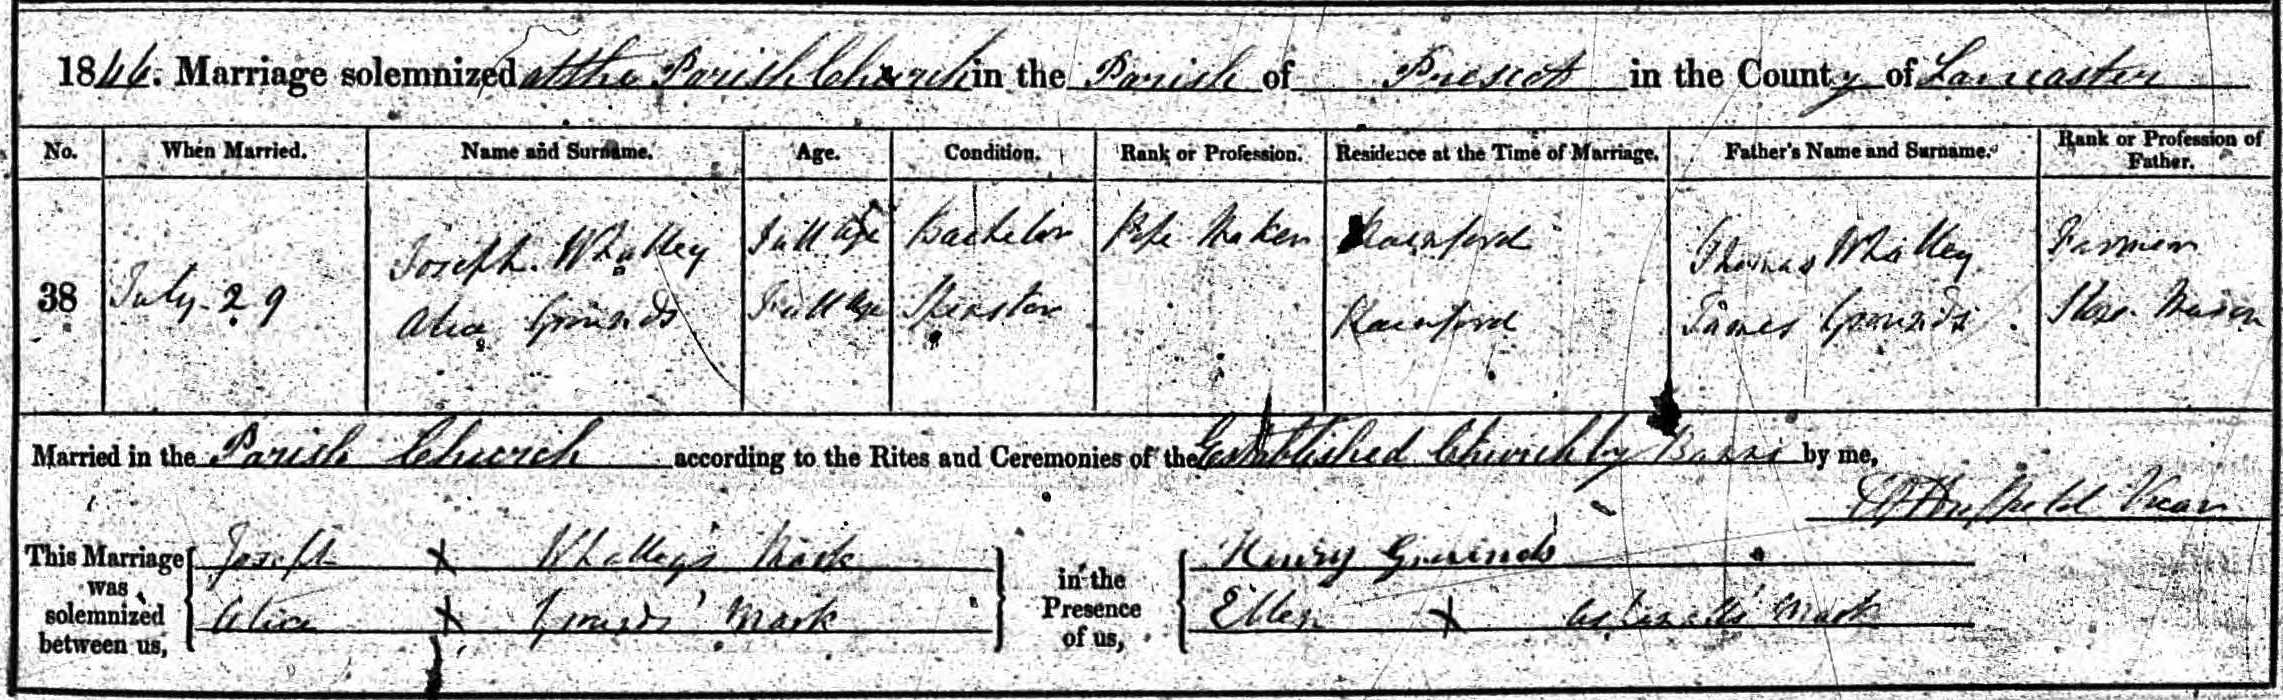 1846. Marriage solemnized at the Parish Church in the Parish of Prescot in the County of Lancaster
No. When Married. Name and Surname. Age. Condition. Rank or Profession. Residence at the Time of Marriage. Father's Name and Surname. Rank or Profession of Father.
Joseph Whalley Full age Bachelor Pipe Maker Rainford Thomas Whalley Farmer
38 July 29
Alice Grounds Full age Spinster Rainford James Grounds Stone Mason
Married in the Parish Church according to the Rites and Ceremonies of the Established Church by Banns by me,
Vicar
This Marriage was solemnized between us,
Joseph X Whalley's Mark
Alice X Grounds' Mark
in the Presence of us,
Henry Grounds
Ellen X Mark